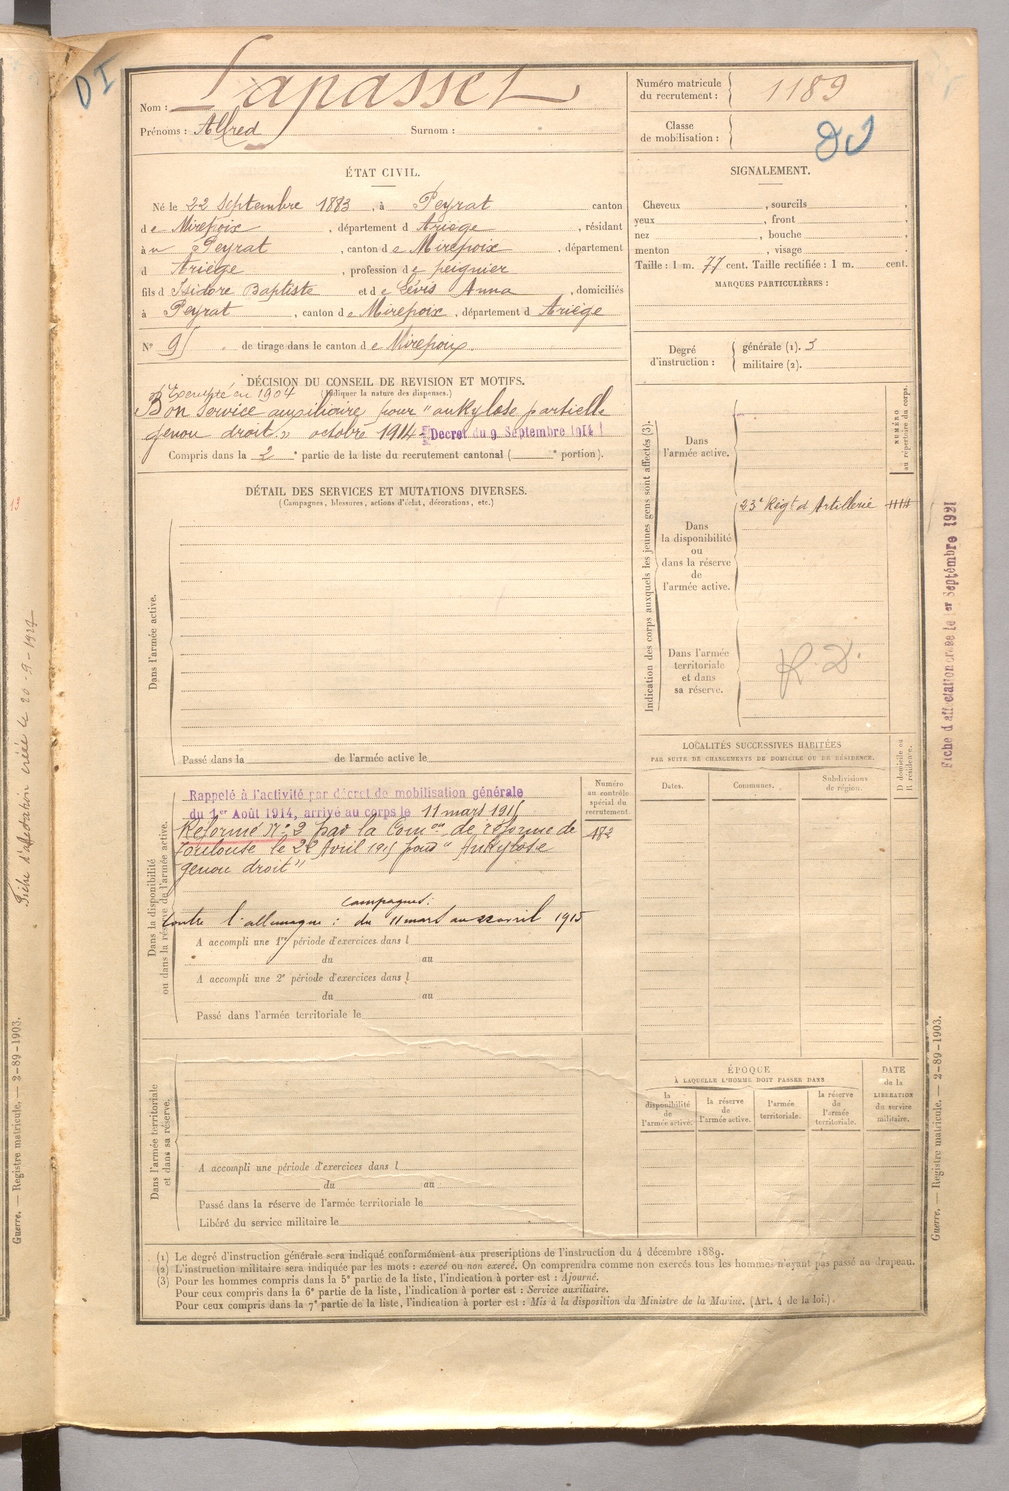 DI
Nom : Lapasset
Prénoms : Alfred Surnom :
Numéro matricule du recrutement : 1189
Classe de mobilisation :
ÉTAT CIVIL.
Né le 22 Septembre 1883, à Peyrat canton
de Mirepoix, département d Ariège, résidant
à Peyrat, canton de Mirepoix, département
d Ariège, profession de peignier
fils d Isidore Baptiste et de Lévis Anna, domiciliés
à Peyrat, canton de Mirepoix, département d Ariège
N° 95 de tirage dans le canton de Mirepoix
SIGNALEMENT.
Cheveux , sourcils .
yeux , front .
nez , bouche .
menton , visage .
Taille : 1 m. 77 cent. Taille rectifiée : 1 m. cent.
MARQUES PARTICULIÈRES :
Degré d'instruction : générale (1). 3
militaire (2).
DÉCISION DU CONSEIL DE REVISION ET MOTIFS.
Exempté en 1904 (Indiquer la nature des dispenses.)
Bon service auxiliaire pour "ankylose partielle
genou droit" octobre 1914 - Décret du 9 Septembre 1914
Compris dans la 2e partie de la liste du recrutement cantonal ( e portion).
DÉTAIL DES SERVICES ET MUTATIONS DIVERSES.
(Campagnes, blessures, actions d'éclat, décorations, etc.)
Dans l'armée active.
Passé dans la de l'armée active le
Indication des corps auxquels les jeunes gens sont affectés (3).
Dans l'armée active.
NUMÉRO au répertoire du corps.
Dans la disponibilité ou dans la réserve de l'armée active.
23e Régt d'Artillerie
Dans l'armée territoriale et dans sa réserve.
R. D.
Dans la disponibilité ou dans la réserve de l'armée active.
Rappelé à l'activité par décret de mobilisation générale
du 1er Août 1914, arrivé au corps le 11 mars 1915
Réformé N° 2 par la Comon de réforme de
Toulouse le 22 Avril 1915 pour "Ankylose
genou droit"
Campagnes :
Contre l'allemagne : du 11 mars au 22 avril 1915
A accompli une 1re période d'exercices dans l
du au
A accompli une 2e période d'exercices dans l
du au
Passé dans l'armée territoriale le
Numéro au contrôle spécial du recrutement.
LOCALITÉS SUCCESSIVES HABITÉES
PAR SUITE DE CHANGEMENTS DE DOMICILE OU DE RÉSIDENCE.
D domicile ou R résidence.
Dates. Communes. Subdivisions de région.
Dans l'armée territoriale et dans sa réserve.
A accompli une période d'exercices dans l
du au
Passé dans la réserve de l'armée territoriale le
Libéré du service militaire le
ÉPOQUE
À LAQUELLE L'HOMME DOIT PASSER DANS
la disponibilité de l'armée active.
la réserve de l'armée active.
l'armée territoriale.
la réserve de l'armée territoriale.
DATE de la LIBÉRATION du service militaire.
(1) Le degré d'instruction générale sera indiqué conformément aux prescriptions de l'instruction du 4 décembre 1889.
(2) L'instruction militaire sera indiquée par les mots : exercé ou non exercé. On comprendra comme non exercés tous les hommes n'ayant pas passé au drapeau.
(3) Pour les hommes compris dans la 5e partie de la liste, l'indication à porter est : Ajourné.
Pour ceux compris dans la 6e partie de la liste, l'indication à porter est : Service auxiliaire.
Pour ceux compris dans la 7e partie de la liste, l'indication à porter est : Mis à la disposition du Ministre de la Marine. (Art. 4 de la loi.)
Fiche d'affectation créée le 1er Septembre 1921
Guerre. — Registre matricule. — 2-89-1903.
13
Fiche d'affectation créée le 20-9-1927
Guerre. — Registre matricule. — 2-89-1903.